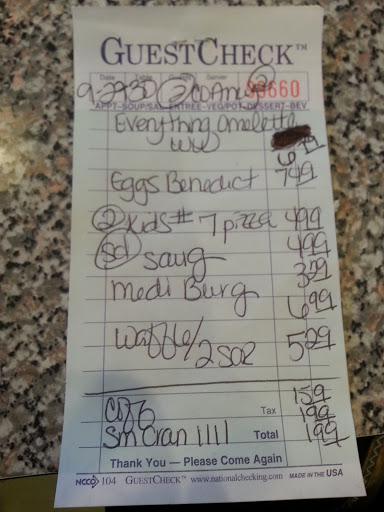 GUESTCHECK™
Date Table Guests Server
660
APPT-SOUP/SAL-ENTREE-VEG/POT-DESSERT-BEV
Everything Omelette
WW 6
Eggs Benedict 7.49
② Kids # 7 pizza 4.99
4.99
Saug 3
Medi Burg 6.99
Waffle/ 2 SOZ 5
1.59
Tax 1.99
Sm Oran 1111 Total 1.99
Thank You — Please Come Again
NCCO 104 GUESTCHECK™ www.nationalchecking.com MADE IN THE USA